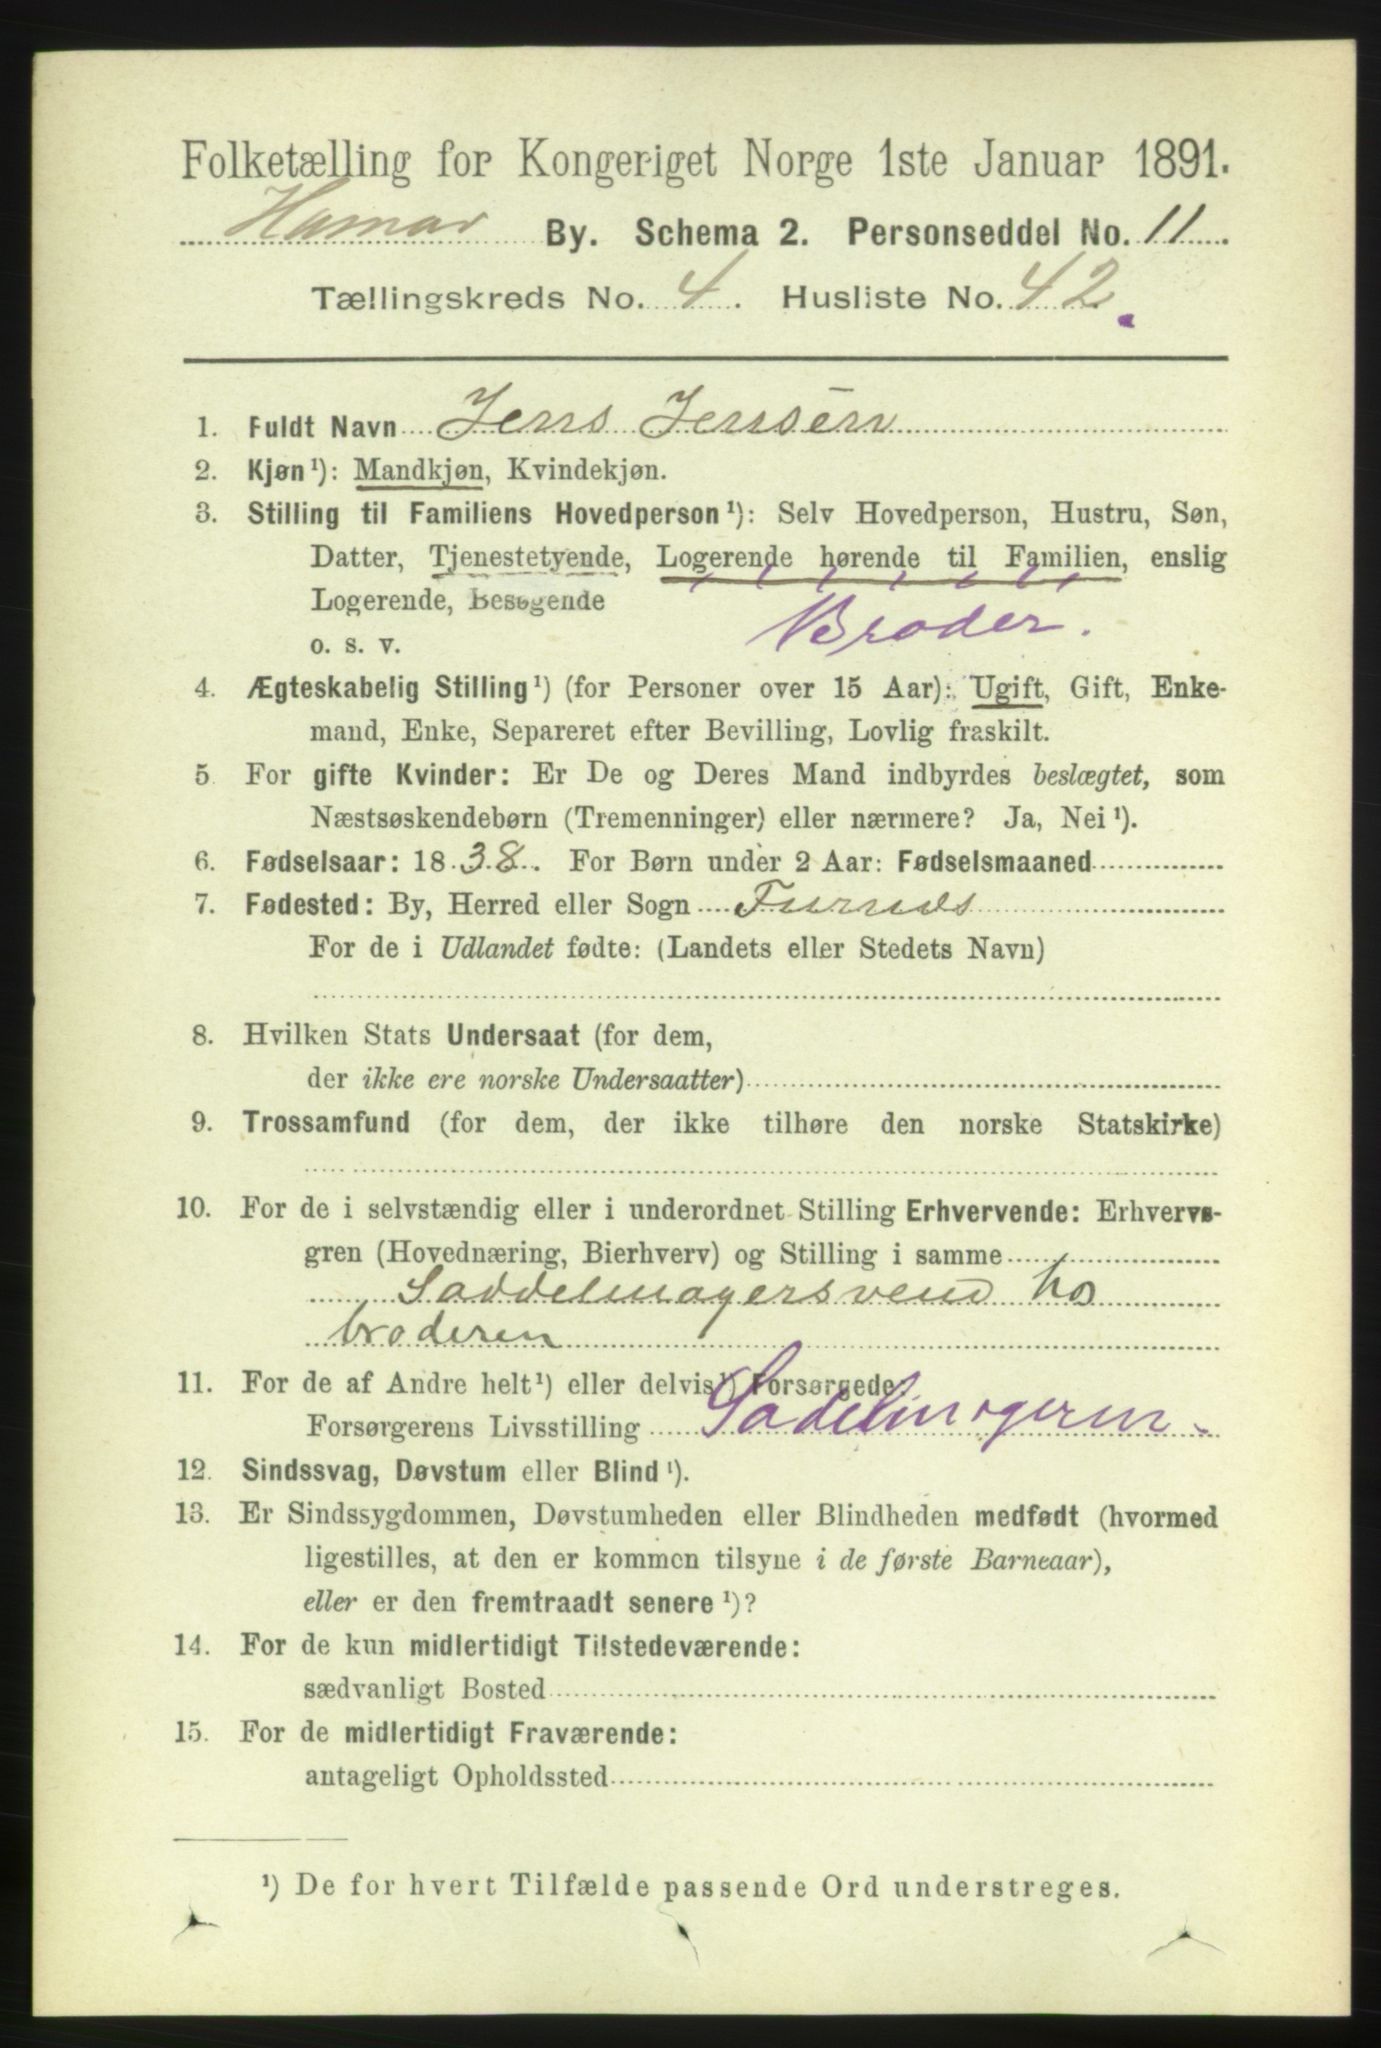 Folketælling for Kongeriget Norge 1ste Januar 1891.
Hamar By. Schema 2. Personseddel No. 11
Tællingskreds No. 4. Husliste No. 42
1. Fuldt Navn Jens Jensen
2. Kjøn¹): Mandkjøn, Kvindekjøn.
3. Stilling til Familiens Hovedperson¹): Selv Hovedperson, Hustru, Søn,
Datter, Tjenestetyende, Logerende hørende til Familien, enslig
Logerende, Besøgende
Broder.
o. s. v.
4. Ægteskabelig Stilling¹) (for Personer over 15 Aar): Ugift, Gift, Enke-
mand, Enke, Separeret efter Bevilling, Lovlig fraskilt.
5 For gifte Kvinder: Er De og Deres Mand indbyrdes beslægtet, som
Næstsøskendebørn (Tremenninger) eller nærmere? Ja, Nei¹).
6. Fødselsaar: 1838. For Børn under 2 Aar: Fødselsmaaned
7. Fødested: By, Herred eller Sogn Furnes
For de i Udlandet fødte: (Landets eller Stedets Navn)
8. Hvilken Stats Undersaat (for dem,
der ikke ere norske Undersaatter)
9. Trossamfund (for dem, der ikke tilhøre den norske Statskirke)
10. For de i selvstændig eller i underordnet Stilling Erhvervende: Erhvervs-
gren (Hovednæring, Bierhverv) og Stilling i samme
Saddelmagersvend hos
broderen
11. For de af Andre helt¹) eller delvis¹) Forsørgede,
Forsørgerens Livsstilling Sadelmageren
12. Sindssvag, Døvstum eller Blind¹).
13. Er Sindssygdommen, Døvstumheden eller Blindheden medfødt (hvormed
ligestilles, at den er kommen tilsyne i de første Barneaar),
eller er den fremtraadt senere¹)?
14. For de kun midlertidigt Tilstedeværende:
sædvanligt Bosted
15. For de midlertidigt Fraværende:
antageligt Opholdssted
¹) De for hvert Tilfælde passende Ord understreges.